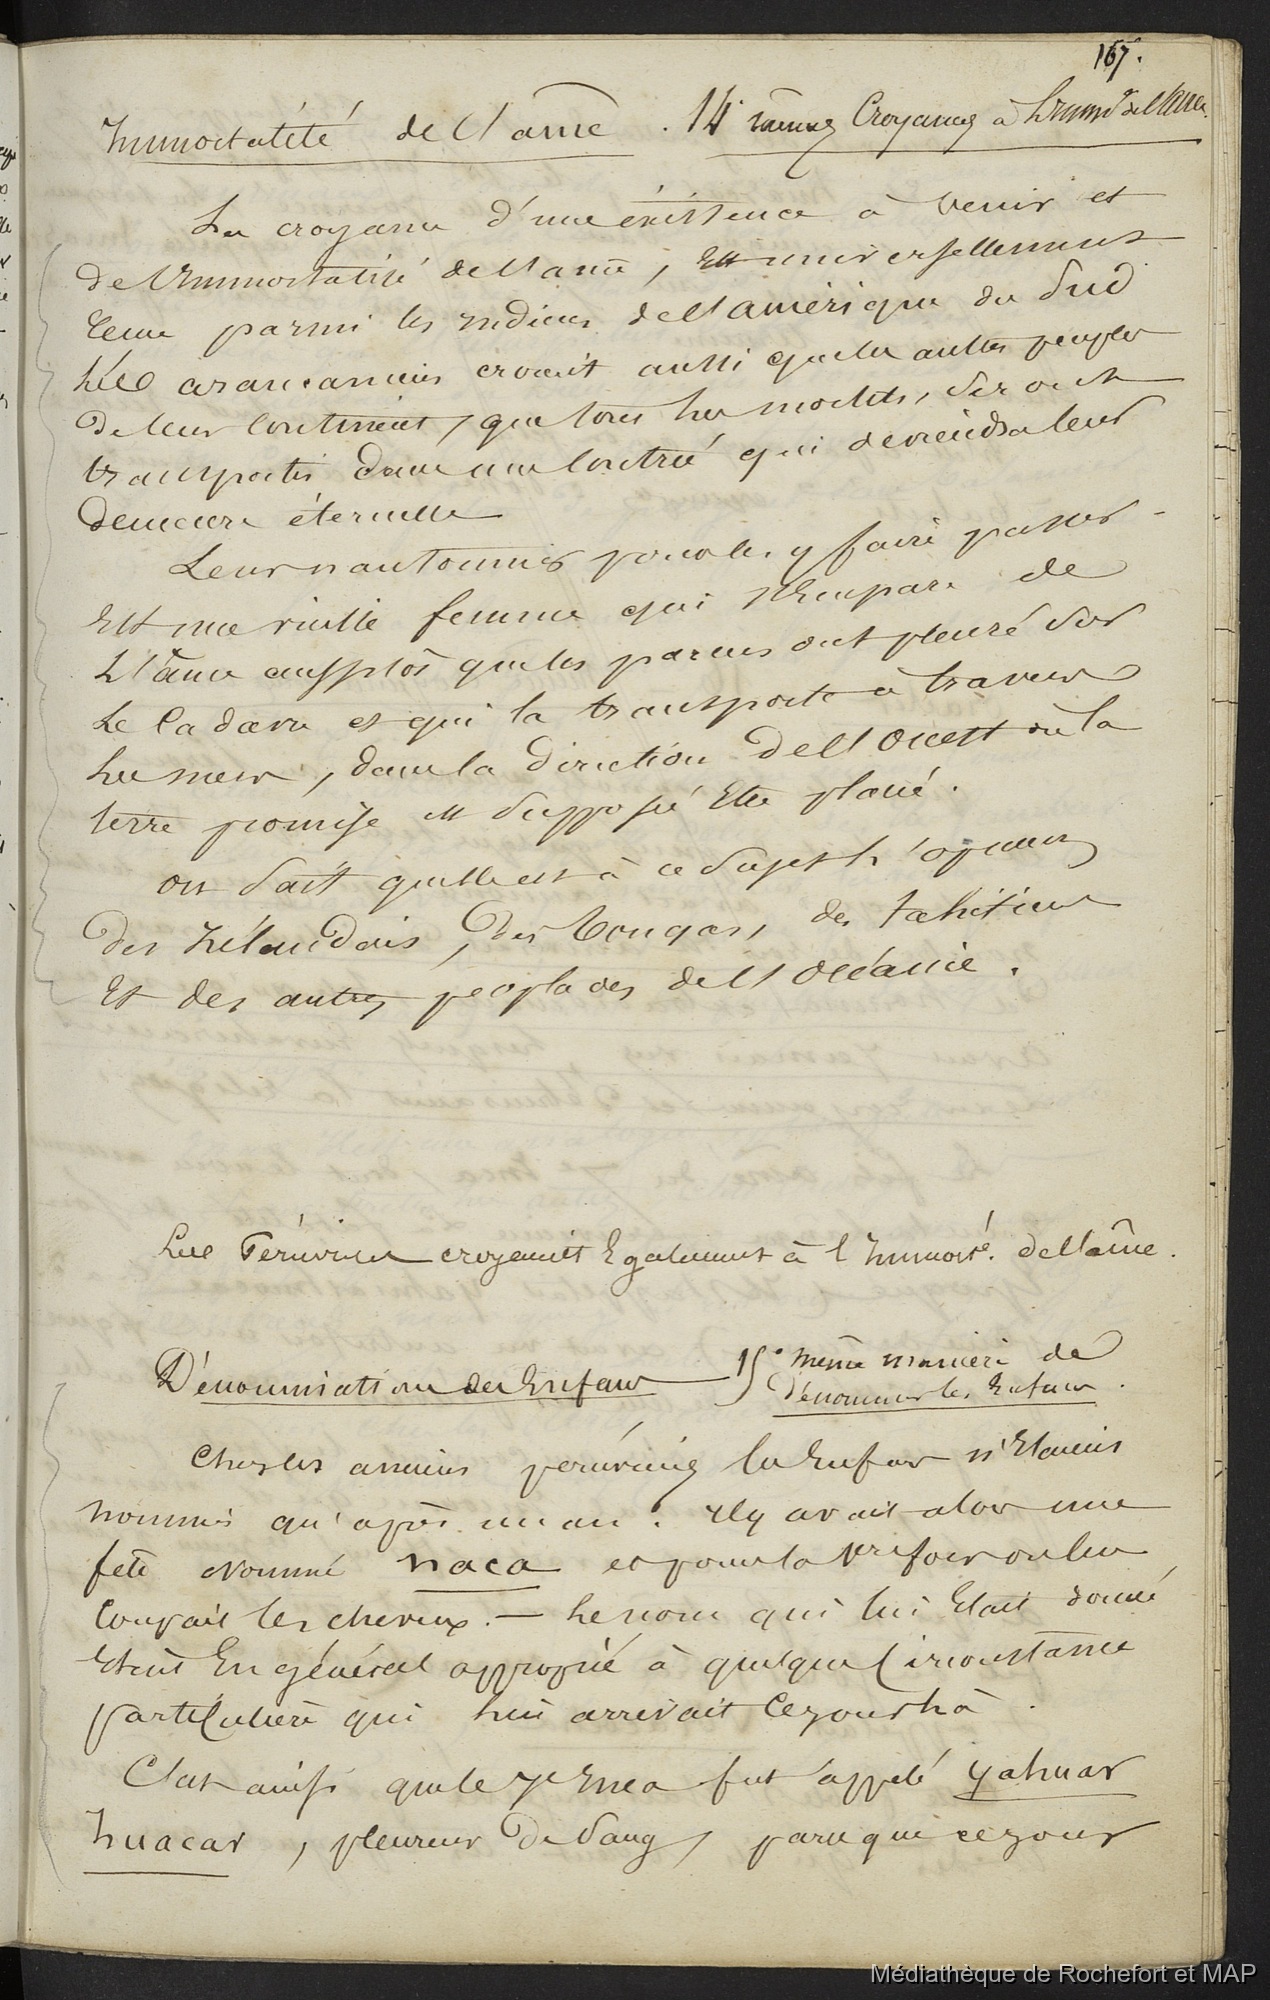 167.
Immortalité de l'ame . 14° même Croyance à L'immté de l'âme.
La croyance d'une existence à venir et
de l'immortalité de l'ame, est universellement
tenue parmi les indiens de l'amérique du Sud
Les araucaniens croient aussi que les autres peuples
de leur Continent, que tous les mortels, seront
transportés dans une Contrée qui deviendra leur
demeure éternelle
Leur nautonnier pour les y faire passer
Est une vieille femme qui s'Empare de
L'âme aussitôt que les parens ont pleuré sur
Le Cadavre et qui la transporte à travers
Les mers, dans la direction de l'Ouest où la
terre promise est supposée Etre placée.
on sait quelle est à ce sujet l'opinion
des Zélandais, des Tongas, des tahitiens
Et des autres peuplades de l'Océanie.
Les Péruviens croyaient Egalement à l'immorté. de l'âme.
Dénomination des Enfans — 15° même manière de
dénommer les Enfans.
Chez les anciens péruviens les Enfans n'Etaient
nommés qu'après un an. il y avait alors une
fête Nommée naca et pour la 1re fois on leur
Coupait les cheveux. — Le nom qui lui Etait donné
Etait En général approprié à quelque Circonstance
particulière qui lui arrivait Ce jour là.
C'est ainsi que le 7e Inca fut appelé yahuar
huacar, pleureur de Sang, parce que ce jour
Médiathèque de Rochefort et MAP